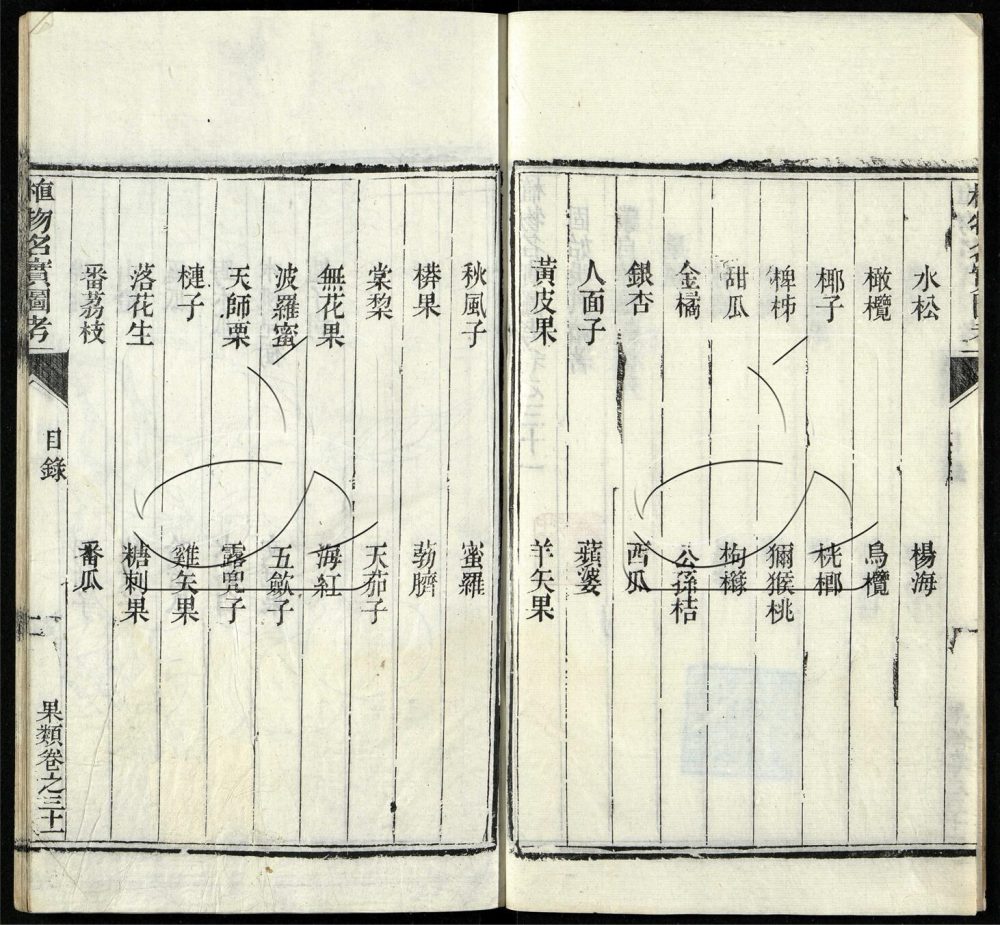 水松　楊海
橄欖　烏欖
椰子　桄榔
椑柿　獼猴桃
甜瓜　枸櫞
金橘　公孫桔
銀杏　西瓜
人面子　蘋婆
黃皮果　羊矢果
秋風子　蜜羅
果　葧臍
棠棃　天茄子
無花果　海紅
波羅蜜　五歛子
天師栗　露兜子
槤子　雞矢果
落花生　糖刺果
番荔枝　番瓜
植物名實圖考　目錄　二　果類卷之三十一